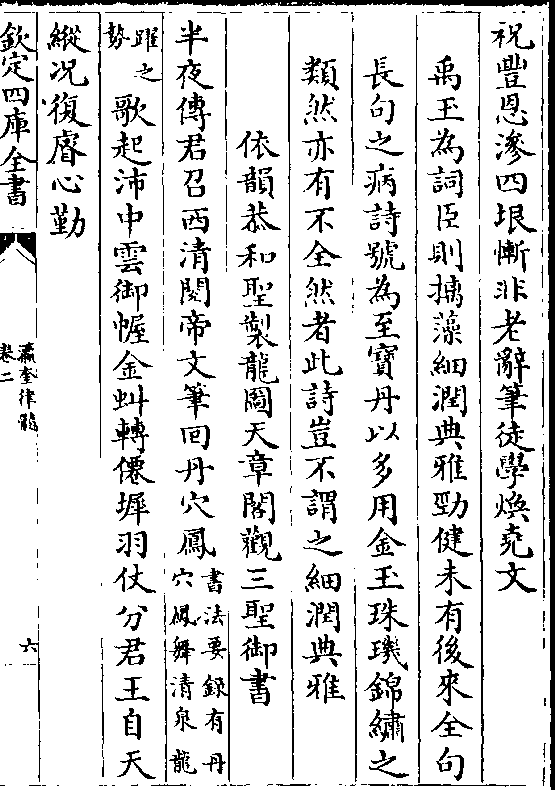 祝豐恩滲四垠慚非老辭筆徒學煥堯文
禹玉為詞臣則摛藻細潤典雅勁健未有後來全句
長句之病詩號為至寶丹以多用金玉珠璣錦繡之
類然亦有不全然者此詩豈不謂之細潤典雅
依韻恭和聖製龍圖天章閣觀三聖御書
半夜傳君召西清閱帝文筆回丹穴鳳書法要錄有丹穴鳳舞清泉龍
躍之勢歌起沛中雲御幄金虯轉僊墀羽仗分君王自天
縱况復睿心勤
欽定四庫全書
瀛奎律髓
卷二
六